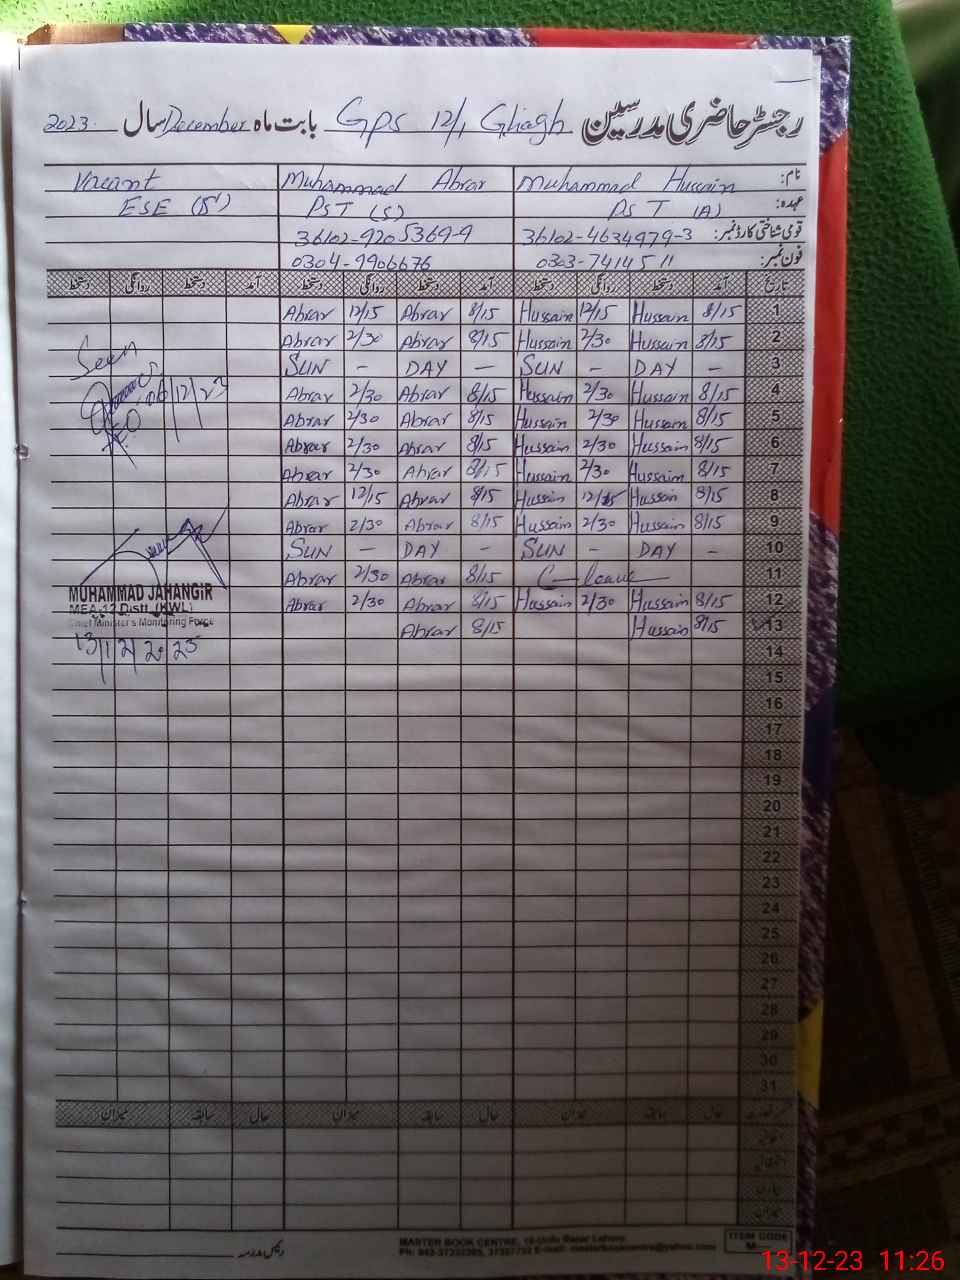 رجسٹر حاضری مدرسین Gps 12/1 Ghagh بابت ماہ December سال 2023
نام: Muhammad Hussain Muhammad Abrar Vacant
عہدہ: PST (A) PST (S) ESE (S)
قومی شناختی کارڈ نمبر: 36102-4634979-3 36102-9205369-9
فون نمبر: 0303-7414511 0304-9906676
تاریخ آمد دستخط روانگی دستخط آمد دستخط روانگی دستخط آمد دستخط روانگی دستخط
1 8/15 Hussain 12/15 Hussain 8/15 Abrar 12/15 Abrar
2 8/15 Hussain 2/30 Hussain 8/15 Abrar 2/30 Abrar
3 - DAY - SUN - DAY - SUN
4 8/15 Hussain 2/30 Hussain 8/15 Abrar 2/30 Abrar
5 8/15 Hussain 2/30 Hussain 8/15 Abrar 2/30 Abrar
6 8/15 Hussain 2/30 Hussain 8/15 Abrar 2/30 Abrar
7 8/15 Hussain 2/30 Hussain 8/15 Abrar 2/30 Abrar
8 8/15 Hussain 12/15 Hussain 8/15 Abrar 12/15 Abrar
9 8/15 Hussain 2/30 Hussain 8/15 Abrar 2/30 Abrar
10 - DAY - SUN - DAY - SUN
11 C-leave 8/15 Abrar 2/30 Abrar
12 8/15 Hussain 2/30 Hussain 8/15 Abrar 2/30 Abrar
13 8/15 Hussain 8/15 Abrar
14
15
16
17
18
19
20
21
22
23
24
25
26
27
28
29
30
31
Seen
06/12/23
MUHAMMAD JAHANGIR
MEA-12 Distt. (KWL)
Chief Minister's Monitoring Force
حال سابقہ میزان حال سابقہ میزان حال سابقہ میزان
میزان
رئیس مدرسہ
MASTER BOOK CENTRE, 10-Urdu Bazar Lahore.
ITEM CODE
13-12-23 11:26